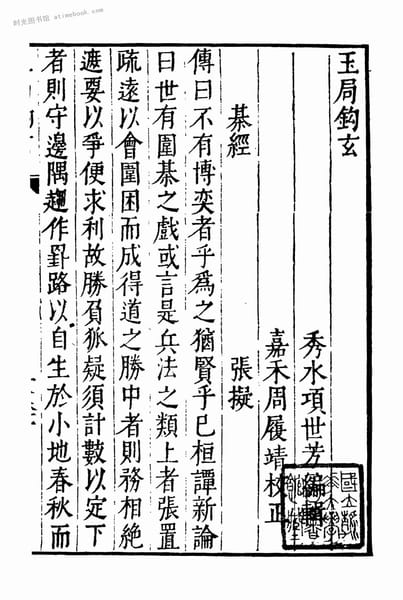 时光图书馆 - atimebook.com
玉局鈎玄
秀水項世芳編輯
嘉禾周履靖校正
棊經 張擬
傳曰不有博奕者乎爲之猶賢乎已桓譚新論
曰世有圍棊之戲或言是兵法之類上者張置
疏遠以會圍困而成得道之勝中者則務相絶
遮要以爭便求利故勝負狐疑須計數以定下
者則守邊隅趨作罫路以自生於小地春秋而